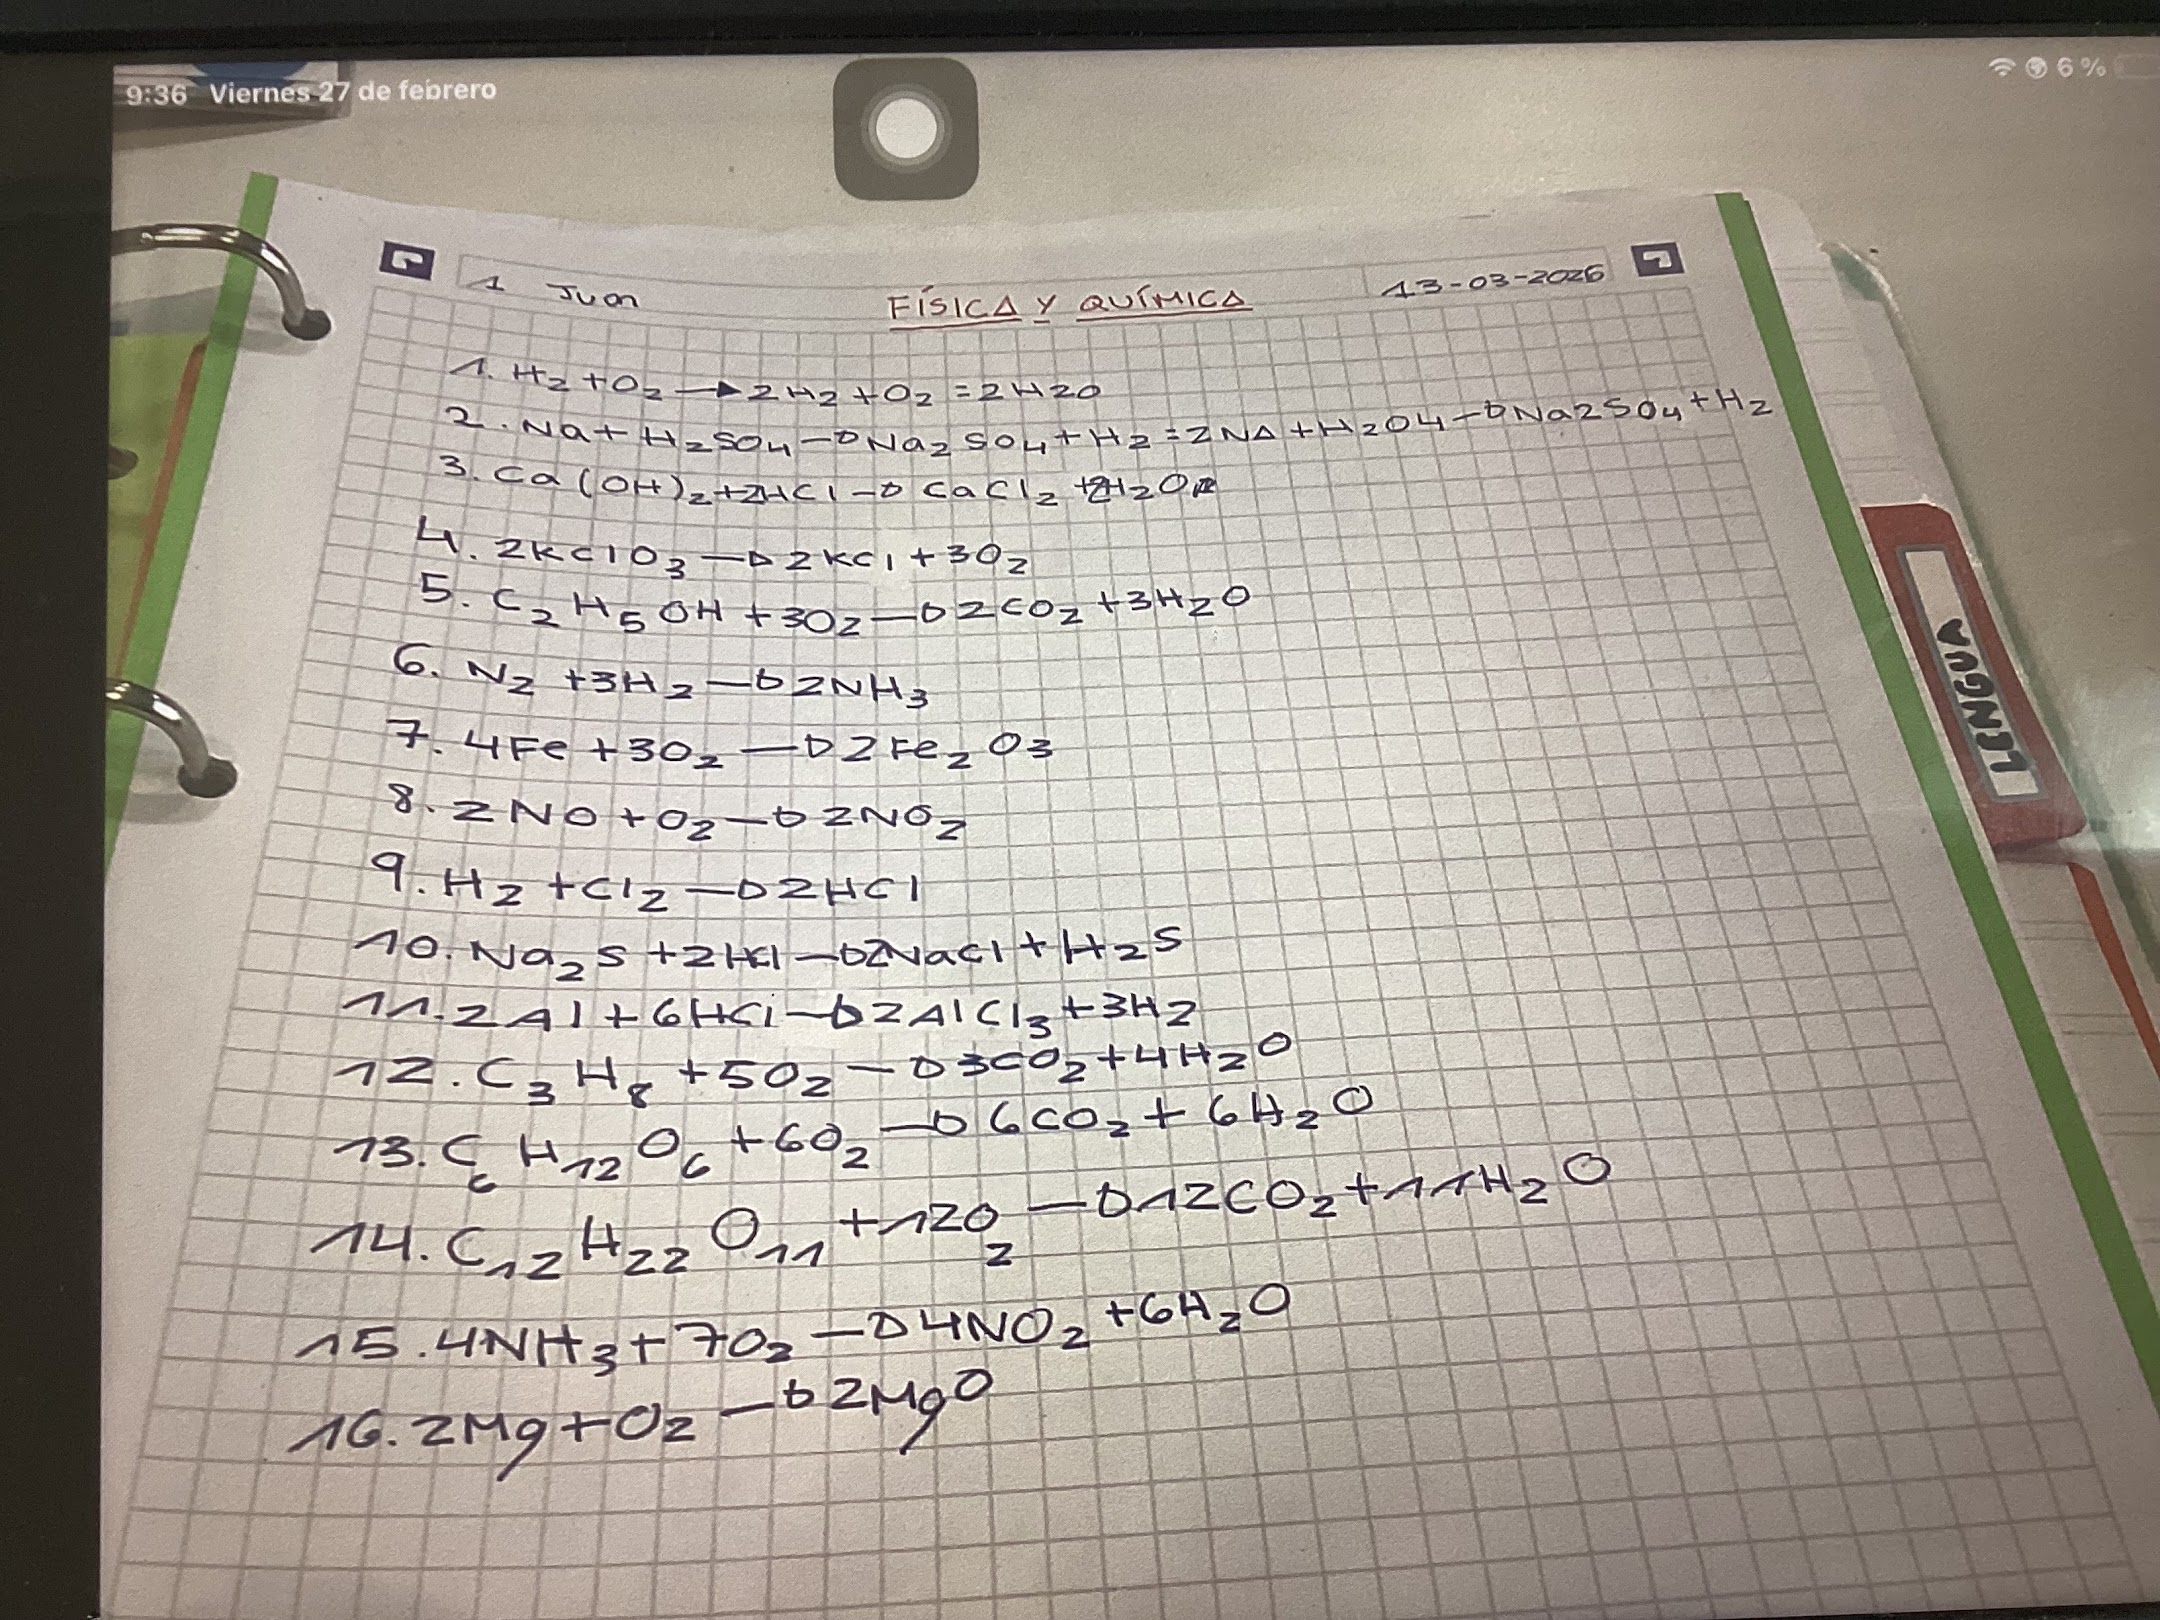 9:36 Viernes 27 de febrero
6 %
1 Juan FÍSICA Y QUÍMICA 13-03-2026
1. H2 + O2 → 2H2 + O2 = 2H2O
2. Na + H2SO4 → Na2SO4 + H2 = 2NA + H2O4 → Na2SO4 + H2
3. Ca(OH)2 + 2HCl → CaCl2 + 2H2O
4. 2KClO3 → 2KCl + 3O2
5. C2H5OH + 3O2 → 2CO2 + 3H2O
6. N2 + 3H2 → 2NH3
7. 4Fe + 3O2 → 2Fe2O3
8. 2NO + O2 → 2NO2
9. H2 + Cl2 → 2HCl
10. Na2S + 2HCl → 2NaCl + H2S
11. 2Al + 6HCl → 2AlCl3 + 3H2
12. C3H8 + 5O2 → 3CO2 + 4H2O
13. C6H12O6 + 6O2 → 6CO2 + 6H2O
14. C12H22O11 + 12O2 → 12CO2 + 11H2O
15. 4NH3 + 7O2 → 4NO2 + 6H2O
16. 2Mg + O2 → 2MgO
LENGUA